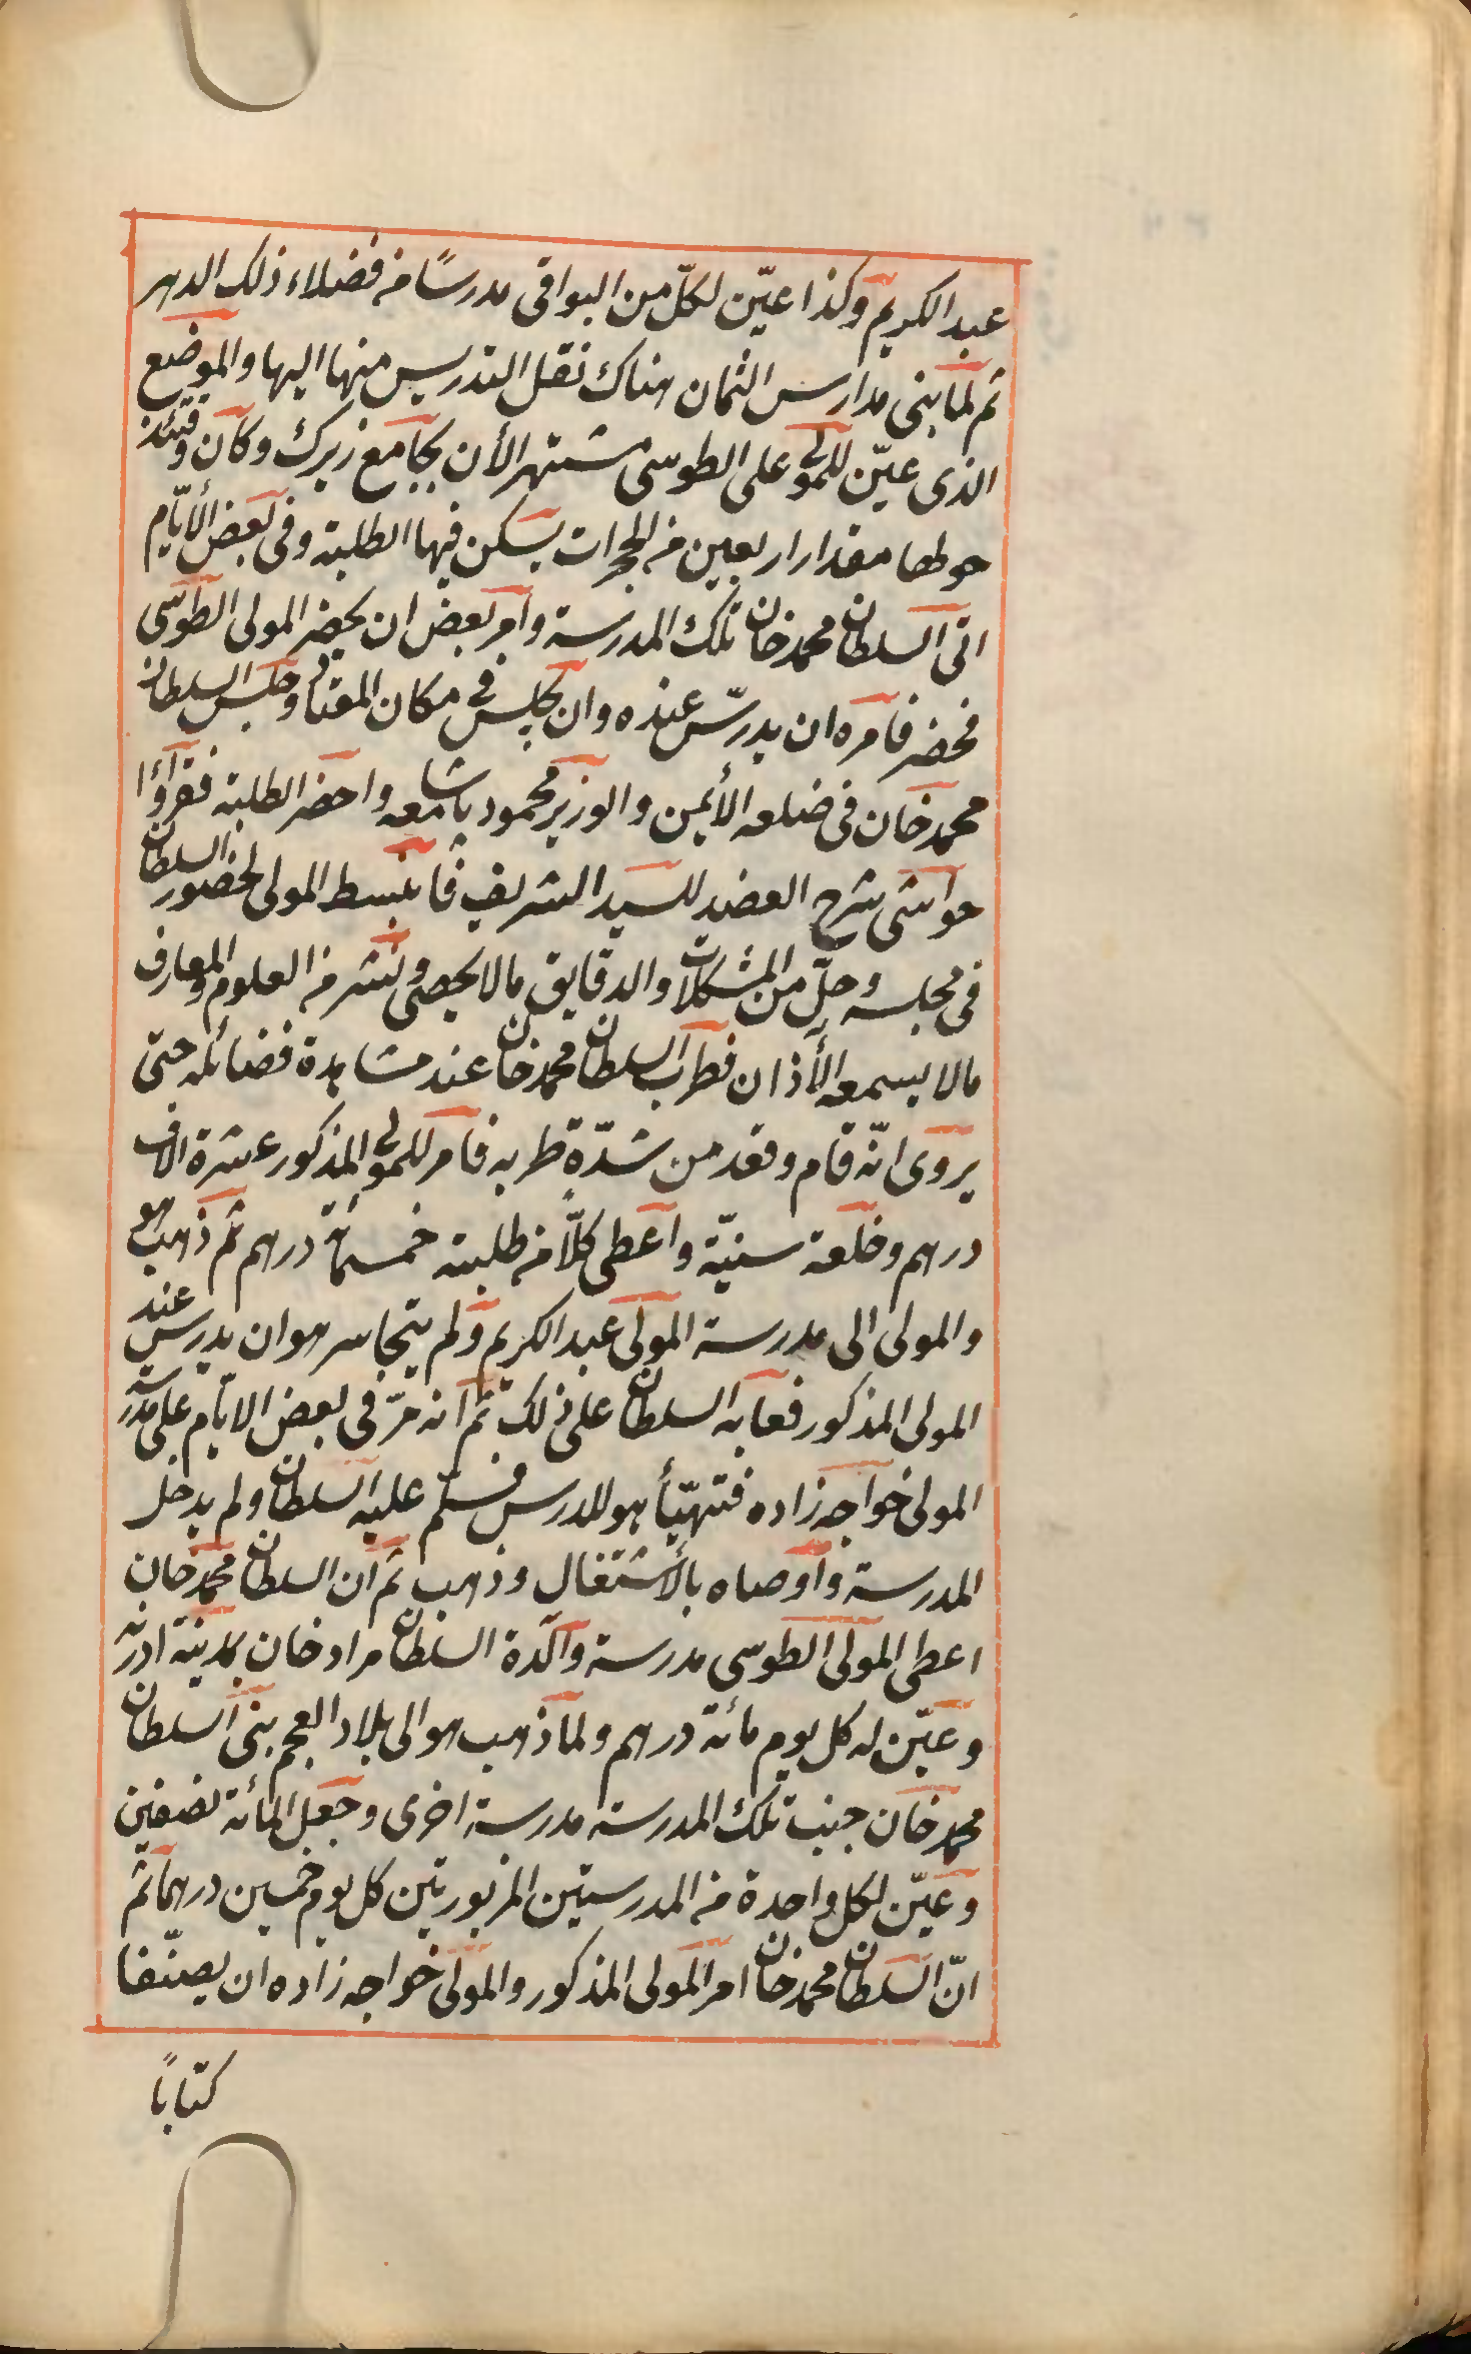 عبد الكريم وكذا عيّن لكلّ من البواقى مدرسًا من فضلاء ذلك الدهر
ثم لما بنى مدارس الثمان هناك نقل التدريس منها اليها والموضع
الذى عيّن للمولى على الطوسى مشتهر الأن بجامع زيرك وكان وقتئذ
حولها مقدار اربعين من الحجرات يسكن فيها الطلبة وفى بعض الأيّام
اتى السلطان محمد خان تلك المدرسة وامر بعض ان يحضر المولى الطوسى
فحضر فامره ان يدرّس عنده وان يجلس فى مكان المعتاد وجلس السلطان
محمد خان فى ضلعه الأيمن والوزير محمود پاشا معه واحضر الطلبة فقرأوا
حواشى شرح العضد للسيد الشريف فانبسط المولى لحضور السلطان
فى مجلسه وحلّ من المشكلات والدقايق مالا يحصى ونشر من العلوم والمعارف
مالا يسمعه الأذان فطرب السلطان محمد خان عند مشاهدة فضائله حتى
يروى انّه قام وقعد من شدّة طربه فامر للمولى المذكور عشرة الاف
درهم وخلعة سنيّة واعطى كلّا من طلبته خمسمائة درهم ثم ذهب هو
والمولى الى مدرسة المولى عبد الكريم ولم يتجاسر هو ان يدرس عند
المولى المذكور فعابه السلطان على ذلك ثم انه مرّ فى بعض الايّام على مدرسة
المولى خواجه زاده فتهيّأ هو للدرس فسلّم عليه السلطان ولم يدخل
المدرسة واوصاه بالأشتغال وذهب ثم ان السلطان محمد خان
اعطى المولى الطوسى مدرسة والدة السلطان مراد خان بمدينة ادرنه
وعيّن له كل يوم مائة درهم ولما ذهب هو الى بلاد العجم بنى السلطان
محمد خان جنب تلك المدرسة مدرسة اخرى وجعل المائة نصفين
وعيّن لكل واحدة من المدرستين المزبورتين كل يوم خمسين درهما ثم
انّ السلطان محمد خان امر المولى المذكور والمولى خواجه زاده ان يصنّفا
كتابًا